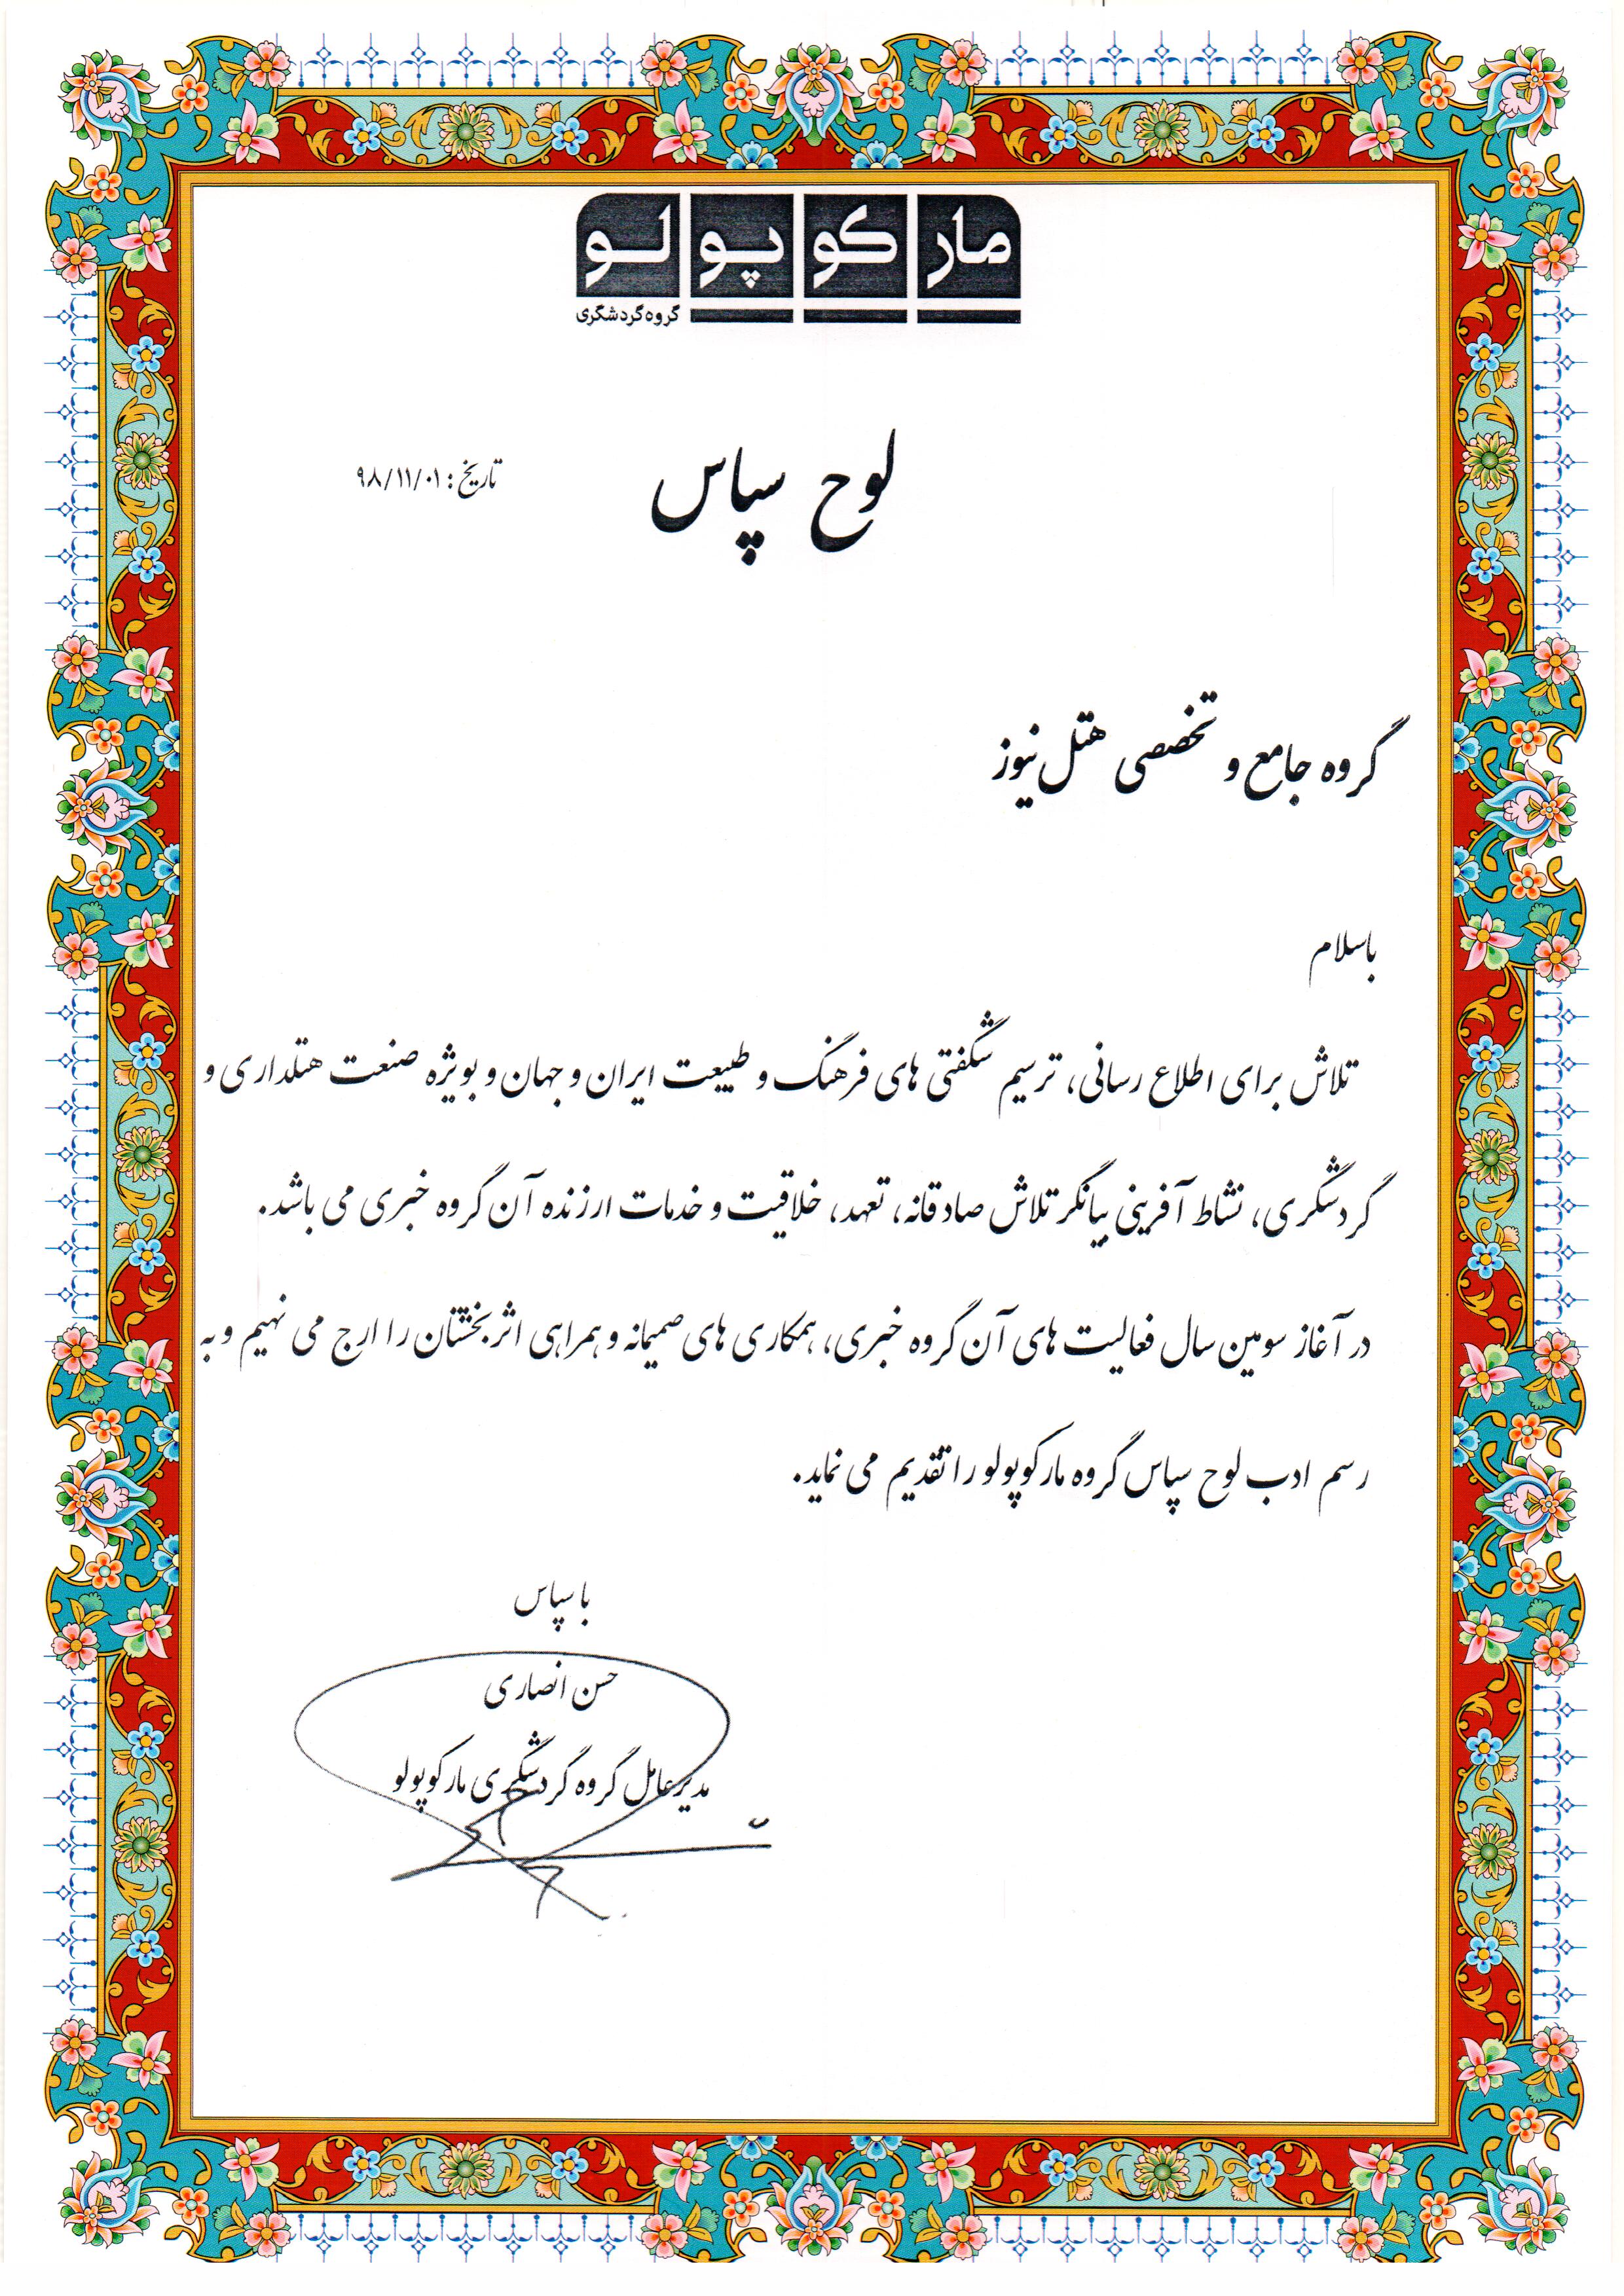 مارکوپولو
گروه گردشگری
لوح سپاس
تاریخ: ۹۸/۱۱/۰۱
گروه جامع و تخصصی هتل نیوز
باسلام
تلاش برای اطلاع رسانی، ترسیم شگفتی های فرهنگ و طبیعت ایران و جهان و بویژه صنعت هتلداری و
گردشگری، نشاط آفرینی بیانگر تلاش صادقانه، تعهد، خلاقیت و خدمات ارزنده آن گروه خبری می باشد.
در آغاز سومین سال فعالیت های آن گروه خبری، همکاری های صمیمانه و همراهی اثربخشتان را ارج می نهیم و به
رسم ادب لوح سپاس گروه مارکوپولو را تقدیم می نماید.
با سپاس
حسن انصاری
مدیرعامل گروه گردشگری مارکوپولو